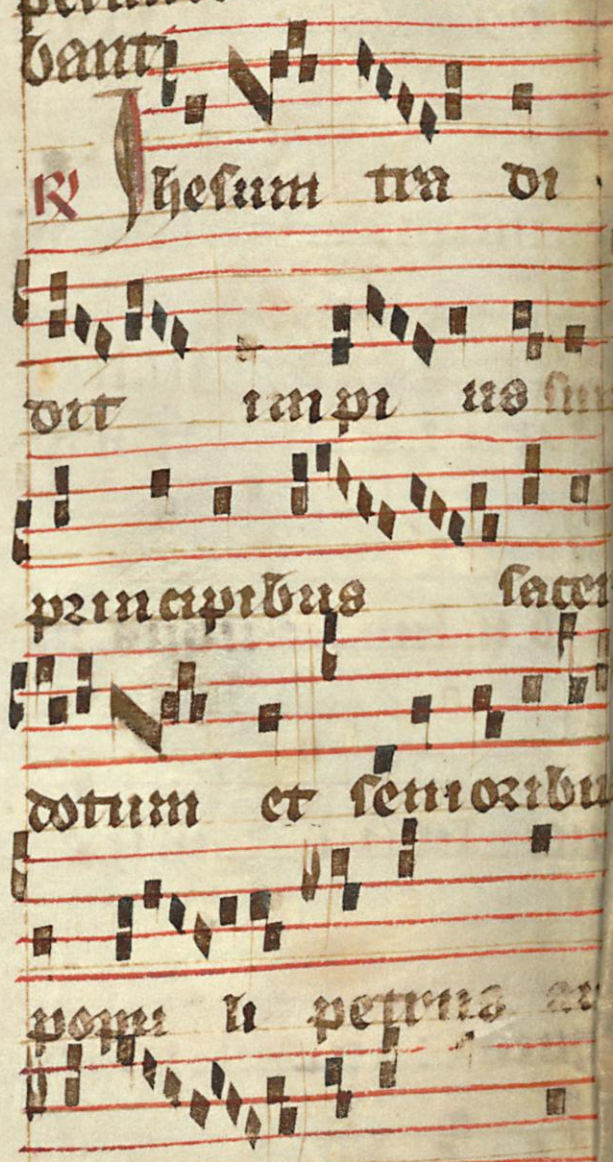 bant
R Ihesum tra di
dit impi us sum
principibus sacer
dotum et senioribu
popu li petrus